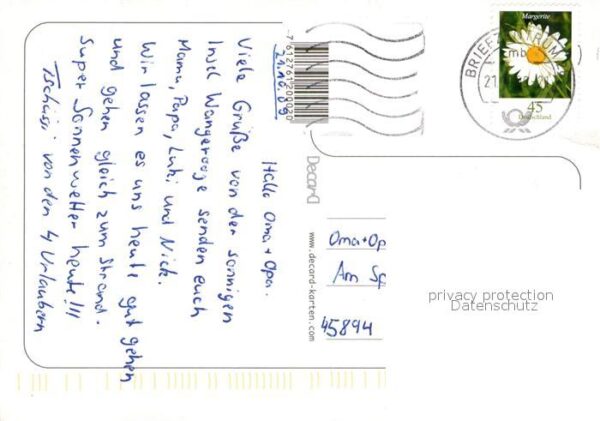 21.10.09
Hallo Oma + Opa.
Viele Grüße von der sonnigen
Insel Wangerooge senden euch
Mama, Papa, Luki und Nick.
Wir lassen es uns heute gut gehen
und gehen gleich zum Strand.
Super Sonnenwetter heute!!!
Tschüssi von den 4 Urlaubern
7612761200020
DecarD
www.decard-karten.com
Oma + Op
Am Sp
45894
privacy protection
Datenschutz
Margerite
45
Deutschland
BRIEFZENTRUM
21